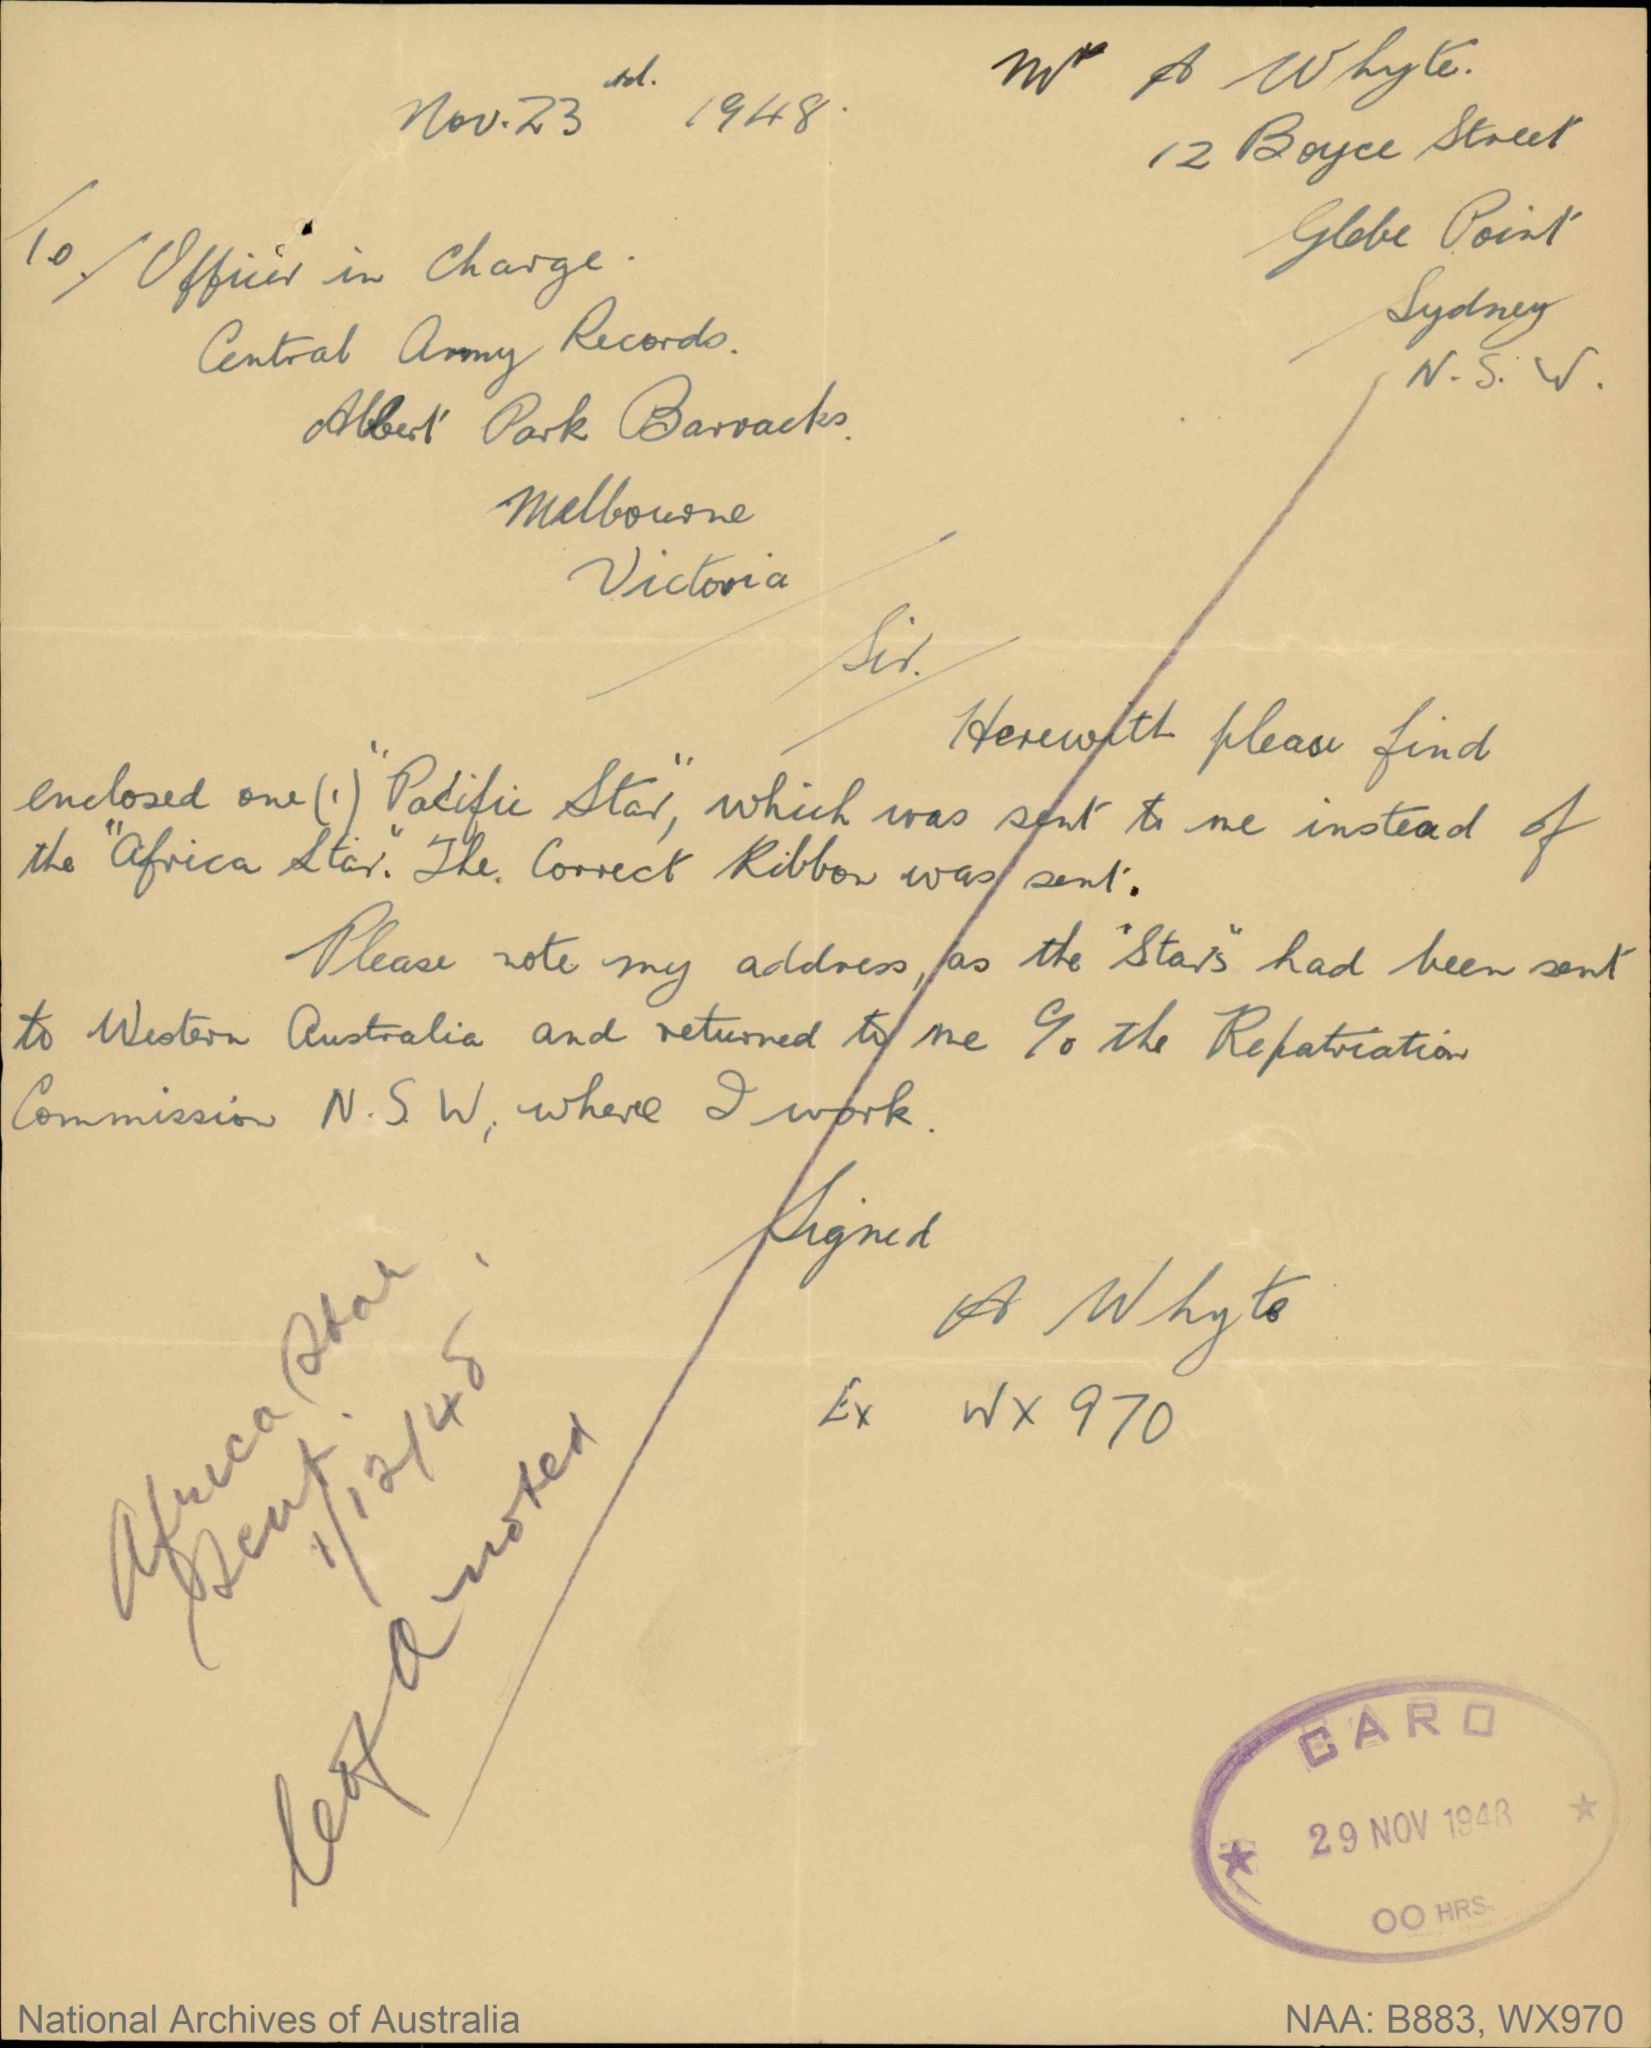 Nov. 23rd. 1948.
Mr A Whyte.
12 Boyce Street
Glebe Point
Sydney
N.S.W.
To/ Officer in Charge.
Central Army Records.
Albert Park Barracks.
Melbourne
Victoria
Sir.
Herewith please find
enclosed one (1) "Pacific Star", which was sent to me instead of
the "Africa Star." The Correct Ribbon was sent.
Please note my address, as the "Stars" had been sent
to Western Australia and returned to me C/o the Repatriation
Commission N.S.W, where I work.
Signed
A Whyte
Ex WX 970
Africa Star
Sent.
1/12/48.
noted
CARO
29 NOV 1948
00 HRS.
National Archives of Australia
NAA: B883, WX970